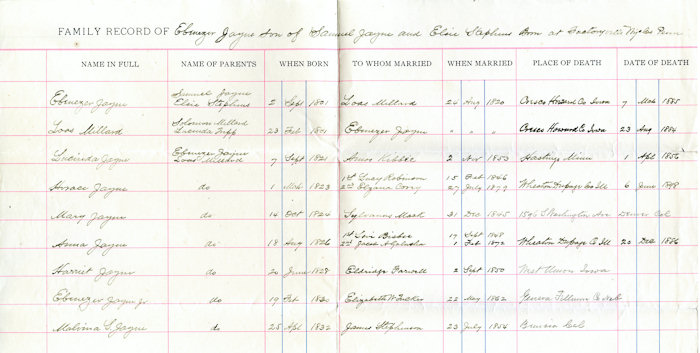 FAMILY RECORD OF Ebenezer Jayne son of Samuel Jayne and Elsie Stephens Born at Factoryville Penn
NAME IN FULL NAME OF PARENTS WHEN BORN TO WHOM MARRIED WHEN MARRIED PLACE OF DEATH DATE OF DEATH
Samuel Jayne
Ebenezer Jayne Elsie Stephens 2 Sept 1801 Loas Millard 24 Aug 1820 Cresco Howard Co Iowa 7 Mch 1885
Solomon Millard
Loas Millard Lucinda Tripp 23 Feb 1801 Ebenezer Jayne " " " Cresco Howard Co Iowa 23 Aug 1884
Ebenezer Jayne
Lucinda Jayne Loas Millard 7 Sept 1821 Amos Kibbee 2 Nov 1853 Hastings Minn 1 Apl 1856
1st Lucy Robinson 15 Oct 1846
Horace Jayne do 1 Mch 1823 2nd Corey 27 July 1879 Wheaton Dupage Co Ill 6 June 1898
Mary Jayne do 14 Oct 1824 Sylvanus 31 Dec 1845 1596 S Washington Ave Denver Col
1st Bisbee 19 Sept 1848
Anna Jayne do 18 Aug 1826 2nd Jacob A Galusha 1 Feb 1872 Wheaton Dupage Co Ill 20 Dec 1886
Harriet Jayne do 20 June 1828 Eldridge Farwell 2 Sept 1850 West Union Iowa
Ebenezer Jayne Jr. do 19 Feb 1830 Elizabeth W Tucker 22 May 1862 Geneva Fillmore Co Neb
Malvina S. Jayne do 25 Apl 1832 James Stephenson 23 July 1854 Benicia Cal